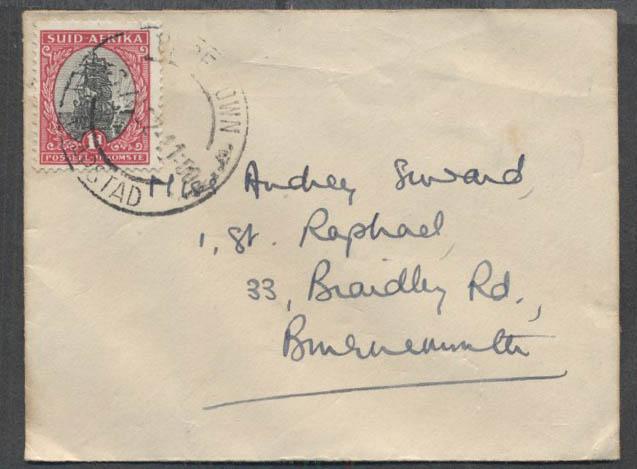 SUID AFRIKA
1D
POSSEEL INKOMSTE
OWN
STAD
Miss Audrey Seward,
1, St. Raphael,
33, Braidley Rd.,
Bournemouth